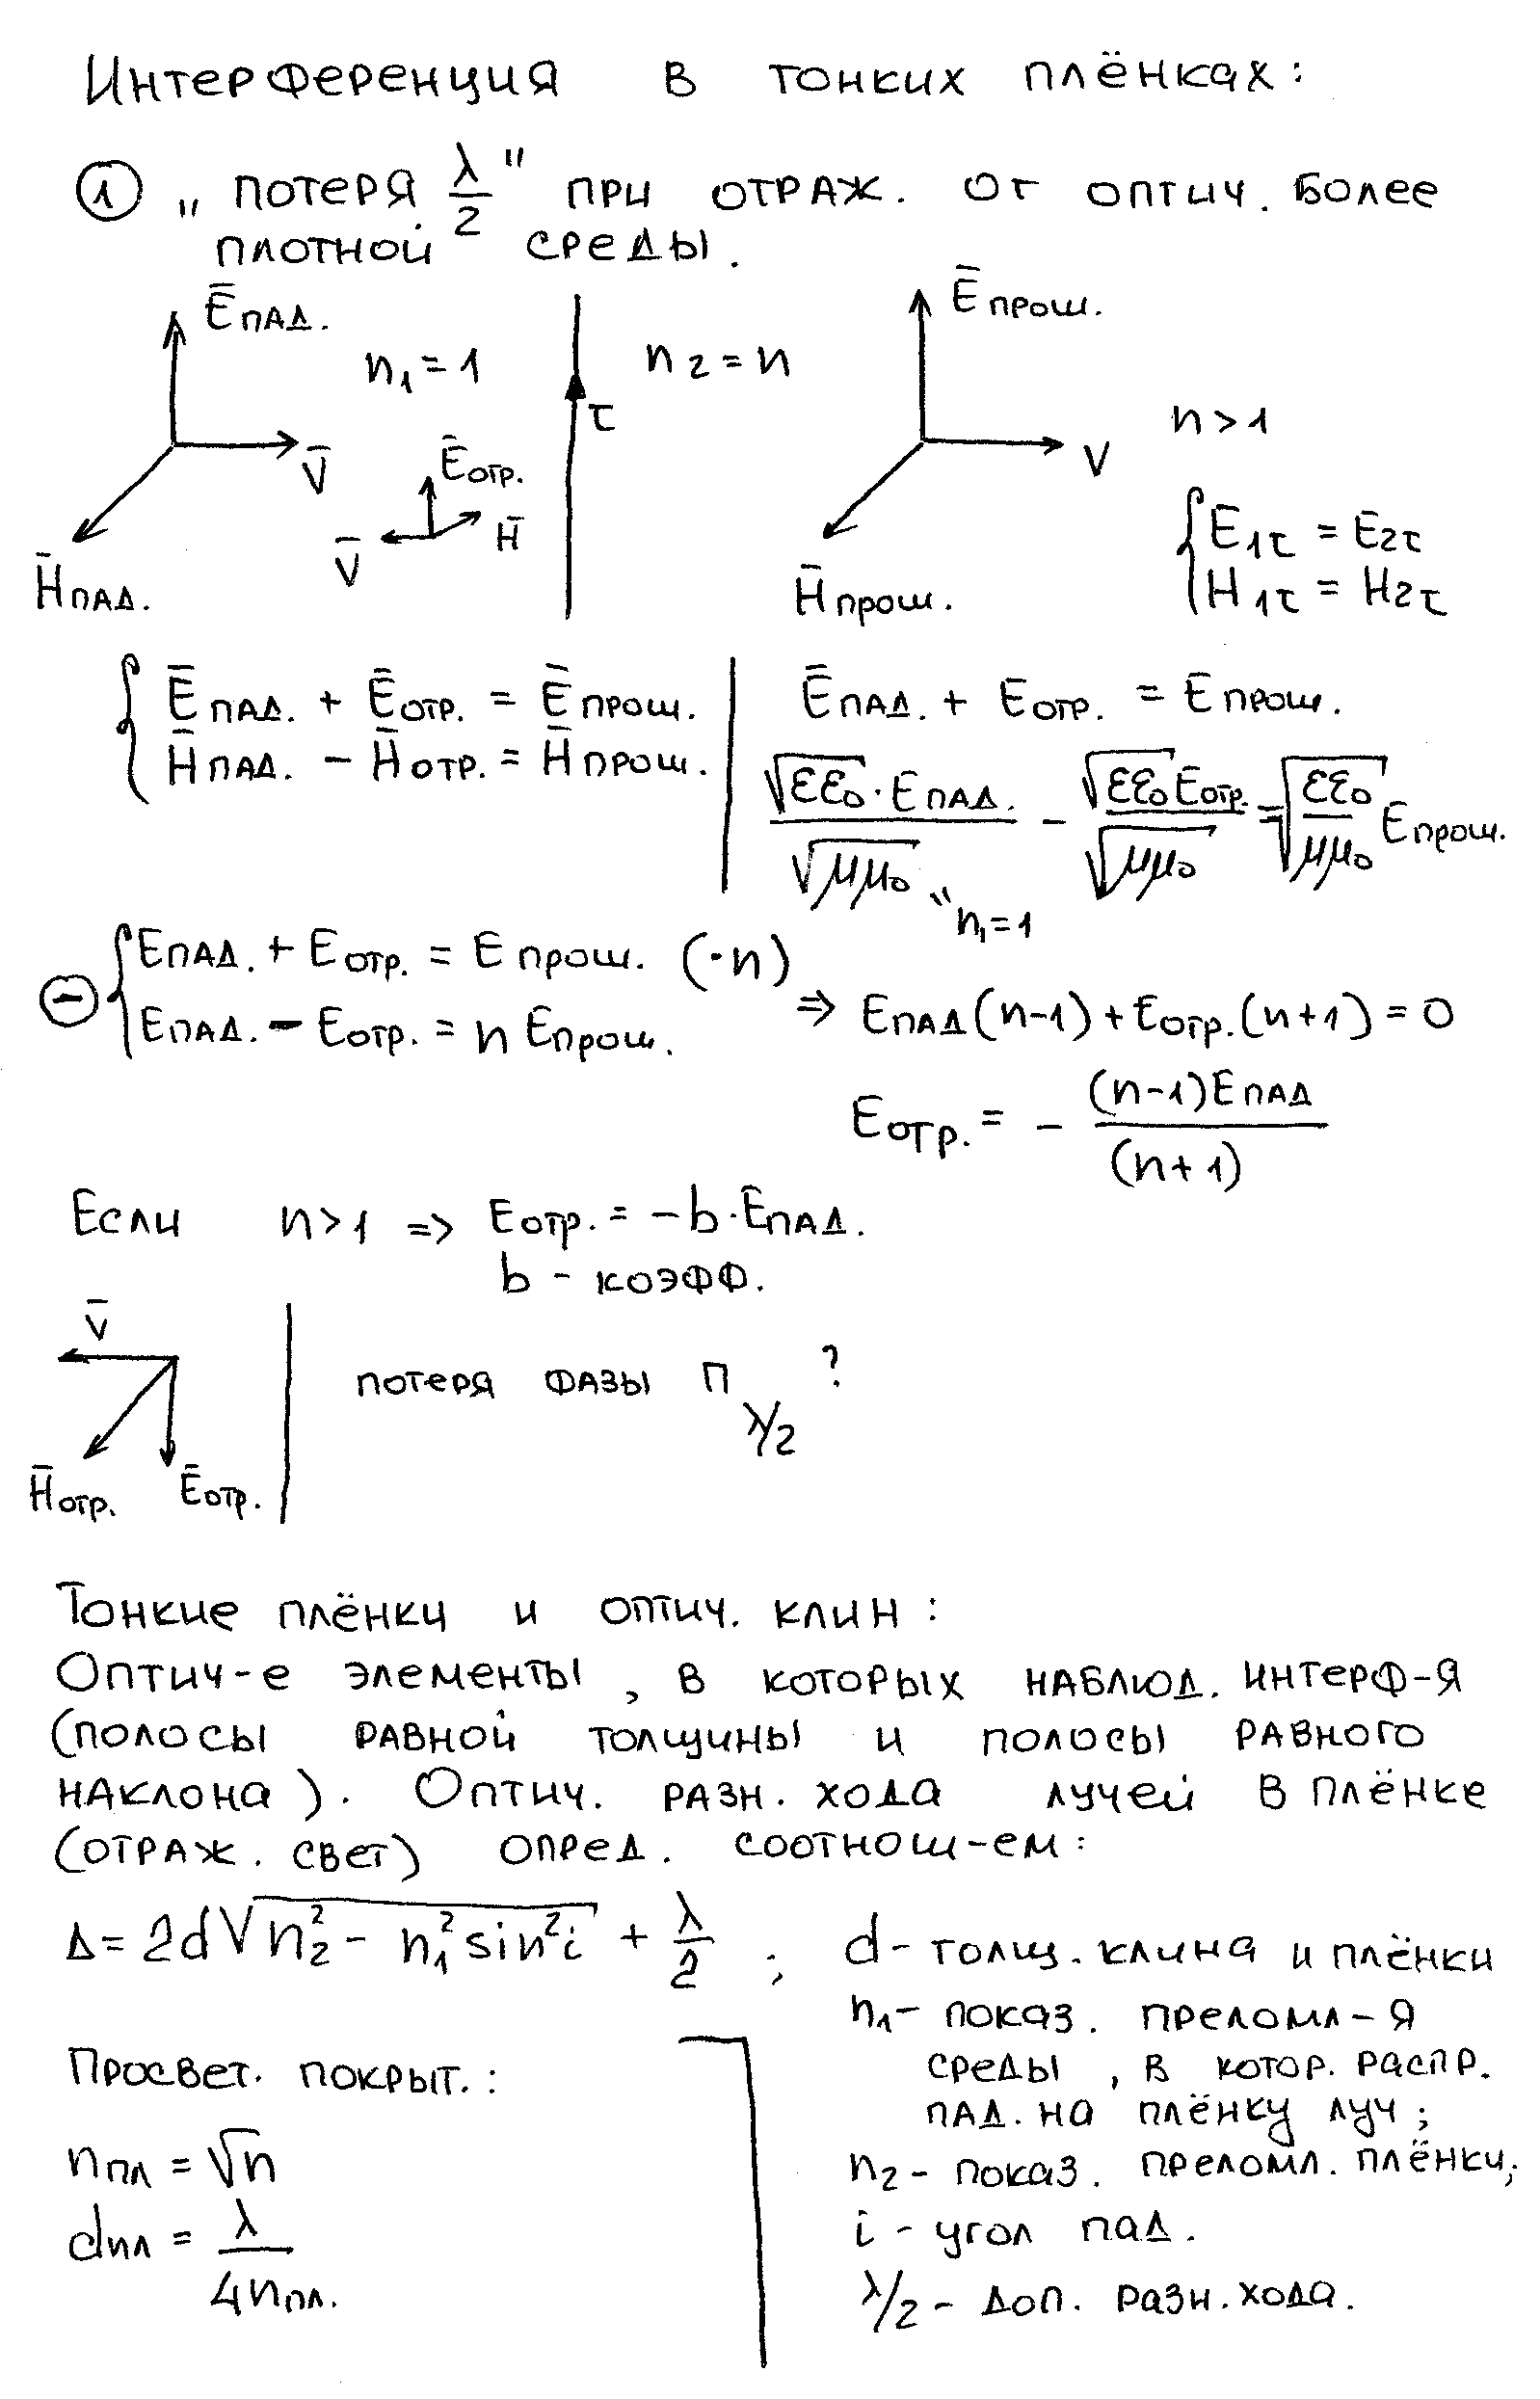 Интерференция в тонких плёнках:
① „потеря λ/2" при отраж. от оптич. более
плотной среды.
E̅пад. n₁=1 n₂=n E̅прош.
τ n>1
V̅ E̅отр. V
V̅ H̅ { E₁τ = E₂τ
H̅пад. H̅прош. H₁τ = H₂τ
{ E̅пад. + E̅отр. = E̅прош. | E̅пад. + Eотр. = Eпрош.
H̅пад. – H̅отр. = H̅прош. | √εε₀·Eпад./√μμ₀ – √εε₀Eотр./√μμ₀ = √(εε₀/μμ₀) Eпрош.
"n₁=1
⊖ { Eпад. + Eотр. = Eпрош. (·n)
Eпад. – Eотр. = n Eпрош. ⇒ Eпад(n-1)+Eотр.(n+1)=0
Eотр. = – (n-1)Eпад/(n+1)
Если n>1 => Eотр. = –b·Eпад.
b – коэфф.
V̅
потеря фазы π ?
λ/2
H̅отр. E̅отр.
Тонкие плёнки и оптич. клин:
Оптич-е элементы, в которых наблюд. интерф-я
(полосы равной толщины и полосы равного
наклона). Оптич. разн. хода лучей в плёнке
(отраж. свет) опред. соотнош-ем:
Δ = 2d√(n₂² – n₁² sin²i) + λ/2 ; d – толщ. клина и плёнки
n₁ – показ. преломл-я
среды, в котор. распр.
пад. на плёнку луч;
n₂ – показ. преломл. плёнки;
i – угол пад.
λ/2 – доп. разн. хода.
Просвет. покрыт.:
nпл = √n
dпл = λ/4nпл.